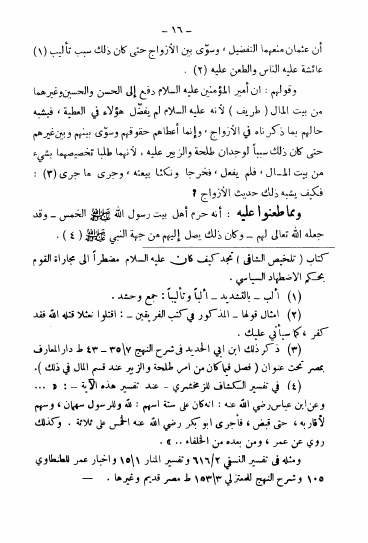 - ١٦ -
أن عثمان منعهما التفضيل ، وسوّى بين الأزواج حتى كان ذلك سبب تأليب (١)
عائشة عليه الناس والطعن عليه (٢) .
وقولهم : ان أمير المؤمنين عليه السلام دفع إلى الحسن والحسين وغيرهما
من بيت المال ( طريف ) لأنه عليه السلام لم يفضّل هؤلاء في العطية ، فيشبه
حالهم بما ذكرناه في الأزواج ، وإنما أعطاهم حقوقهم وسوّى بينهم وبين غيرهم
حتى كان ذلك سبباً لوجدان طلحة والزبير عليه ، لأنهما طلبا تخصيصهما بشيء
من بيت المال ، فلم يفعل ، فخرجا ونكثا بيعته ، وجرى ما جرى (٣) :
فكيف يشبه ذلك حديث الأزواج ؟
ومما طعنوا عليه : أنه حرم أهل بيت رسول الله ﷺ الخمس - وقد
جعله الله تعالى لهم - وكان ذلك يصل إليهم من جهة النبي ﷺ (٤) .
كتاب ( تلخيص الشافي ) تجد كيف كان عليه السلام مضطراً الى مجاراة القوم
بحكم الاضطهاد السياسي .
(١) ألب - بالتشديد - ألباً وتأليباً : جمع وحشد .
(٢) امثال قولها - المذكور في كتب الفريقين - : اقتلوا نعثلا قتله الله فقد
كفر ، كما سيأتي عليك .
(٣) ذكر ذلك ابن ابي الحديد في شرح النهج ٧/٣٥ - ٤٣ ط دار المعارف
بمصر تحت عنوان ( فصل فيما كان من امر طلحة والزبير عند قسم المال في ذلك ) .
(٤) في تفسير الكشاف للزمخشري - عند تفسير هذه الآية - : « ...
وعن ابن عباس رضي الله عنه : انه كان على ستة اسهم : لله وللرسول سهمان ، وسهم
لأقاربه ، حتى قبض ، فأجرى ابو بكر رضي الله عنه الخمس على ثلاثة . وكذلك
روي عن عمر ، ومن بعده من الخلفاء .. » .
ومثله في تفسير النسفي ٦١٦/٢ وتفسير المنار ١٥/١ واخبار عمر للطنطاوي
١٠٥ وشرح النهج للمعتزلي ١٥٣/٣ ط مصر قديم وغيرها . —